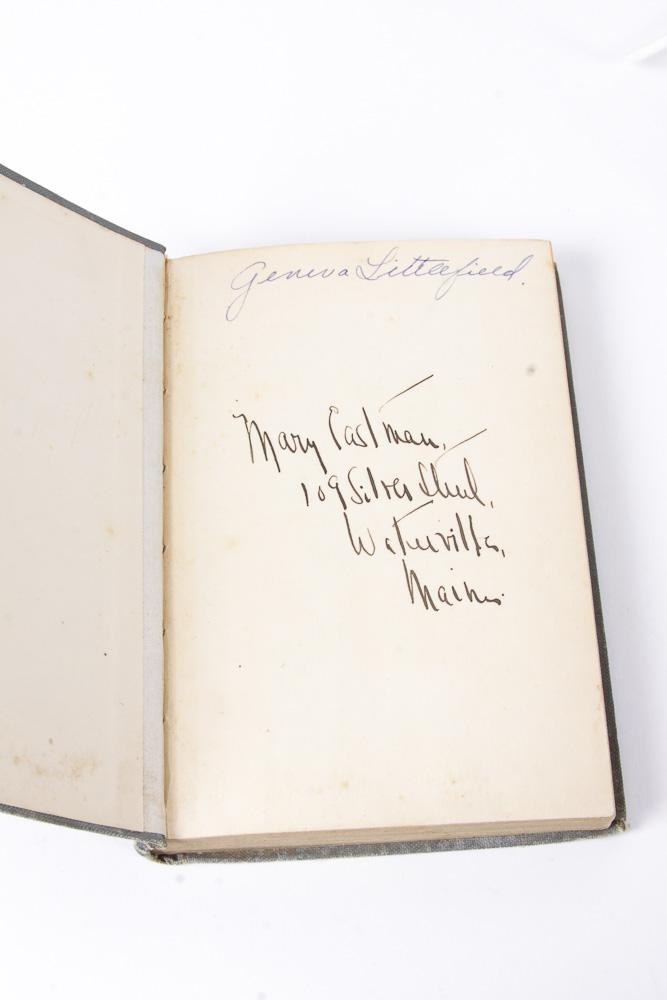 Geneva Littlefield.
Mary Eastman,
109 Silver Street,
Waterville,
Maine.